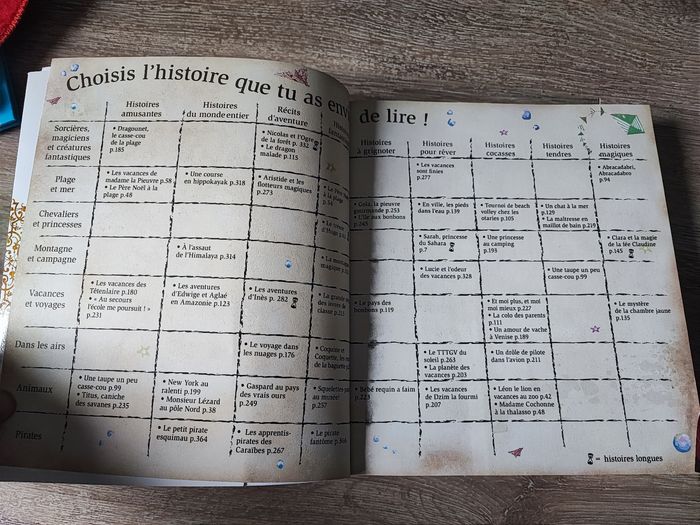 Choisis l'histoire que tu as env de lire !
Histoires
amusantes
Histoires
du monde entier
Récits
d'aventure
Histoires
à grignoter
Histoires
pour rêver
Histoires
cocasses
Histoires
tendres
Histoires
magiques
Sorcières,
magiciens
et créatures
fantastiques
• Dragounet,
le casse-cou
de la plage
p.185
• Nicolas et l'Ogre
de la forêt p. 332
• Le dragon
malade p.115
• Les vacances
sont finies
p.277
• Abracadabri,
Abracadabro
p.94
Plage
et mer
• Les vacances de
madame la Pieuvre p.58
• Le Père Noël à la
plage p.48
• Une course
en hippokayak p.318
• Aristide et les
flotteurs magiques
p.273
• Gola, la pieuvre
gourmande p.253
• L'île aux bonbons
p.245
• En ville, les pieds
dans l'eau p.139
• Tournoi de beach
volley chez les
otaries p.105
• Un chat à la mer
p.129
• La maîtresse en
maillot de bain p.219
Chevaliers
et princesses
• Sarah, princesse
du Sahara
p.7
• Une princesse
au camping
p.193
• Clara et la magie
de la fée Claudine
p.145
Montagne
et campagne
• À l'assaut
de l'Himalaya p.314
• Lucie et l'odeur
des vacances p.328
• Une taupe un peu
casse-cou p.99
Vacances
et voyages
• Les vacances des
Têtenlaire p.180
• « Au secours
l'école me poursuit ! »
p.231
• Les aventures
d'Edwige et Aglaé
en Amazonie p.123
• Les aventures
d'Inès p. 282
• La grande
• Le pays des
bonbons p.119
• Et moi plus, et moi
moi mieux p.227
• La colo des parents
p.111
• Un amour de vache
à Venise p.189
• Le mystère
de la chambre jaune
p.135
Dans les airs
• Le voyage dans
les nuages p.176
• Coquine et
Coquette, les
de la baguette
• Le TTTGV du
soleil p.263
• La planète des
vacances p.203
• Un drôle de pilote
dans l'avion p.211
Animaux
• Une taupe un peu
casse-cou p.99
• Titus, caniche
des savanes p.235
• New York au
ralenti p.199
• Monsieur Lézard
au pôle Nord p.38
• Gaspard au pays
des vrais ours
p.249
• Squelettes
au musée
p.257
• Bébé requin a faim
p.223
• Les vacances
de Dzim la fourmi
p.207
• Léon le lion en
vacances au zoo p.42
• Madame Cochonne
à la thalasso p.48
Pirates
• Le petit pirate
esquimau p.364
• Les apprentis-
pirates des
Caraïbes p.267
• Le pirate
fantôme
= histoires longues